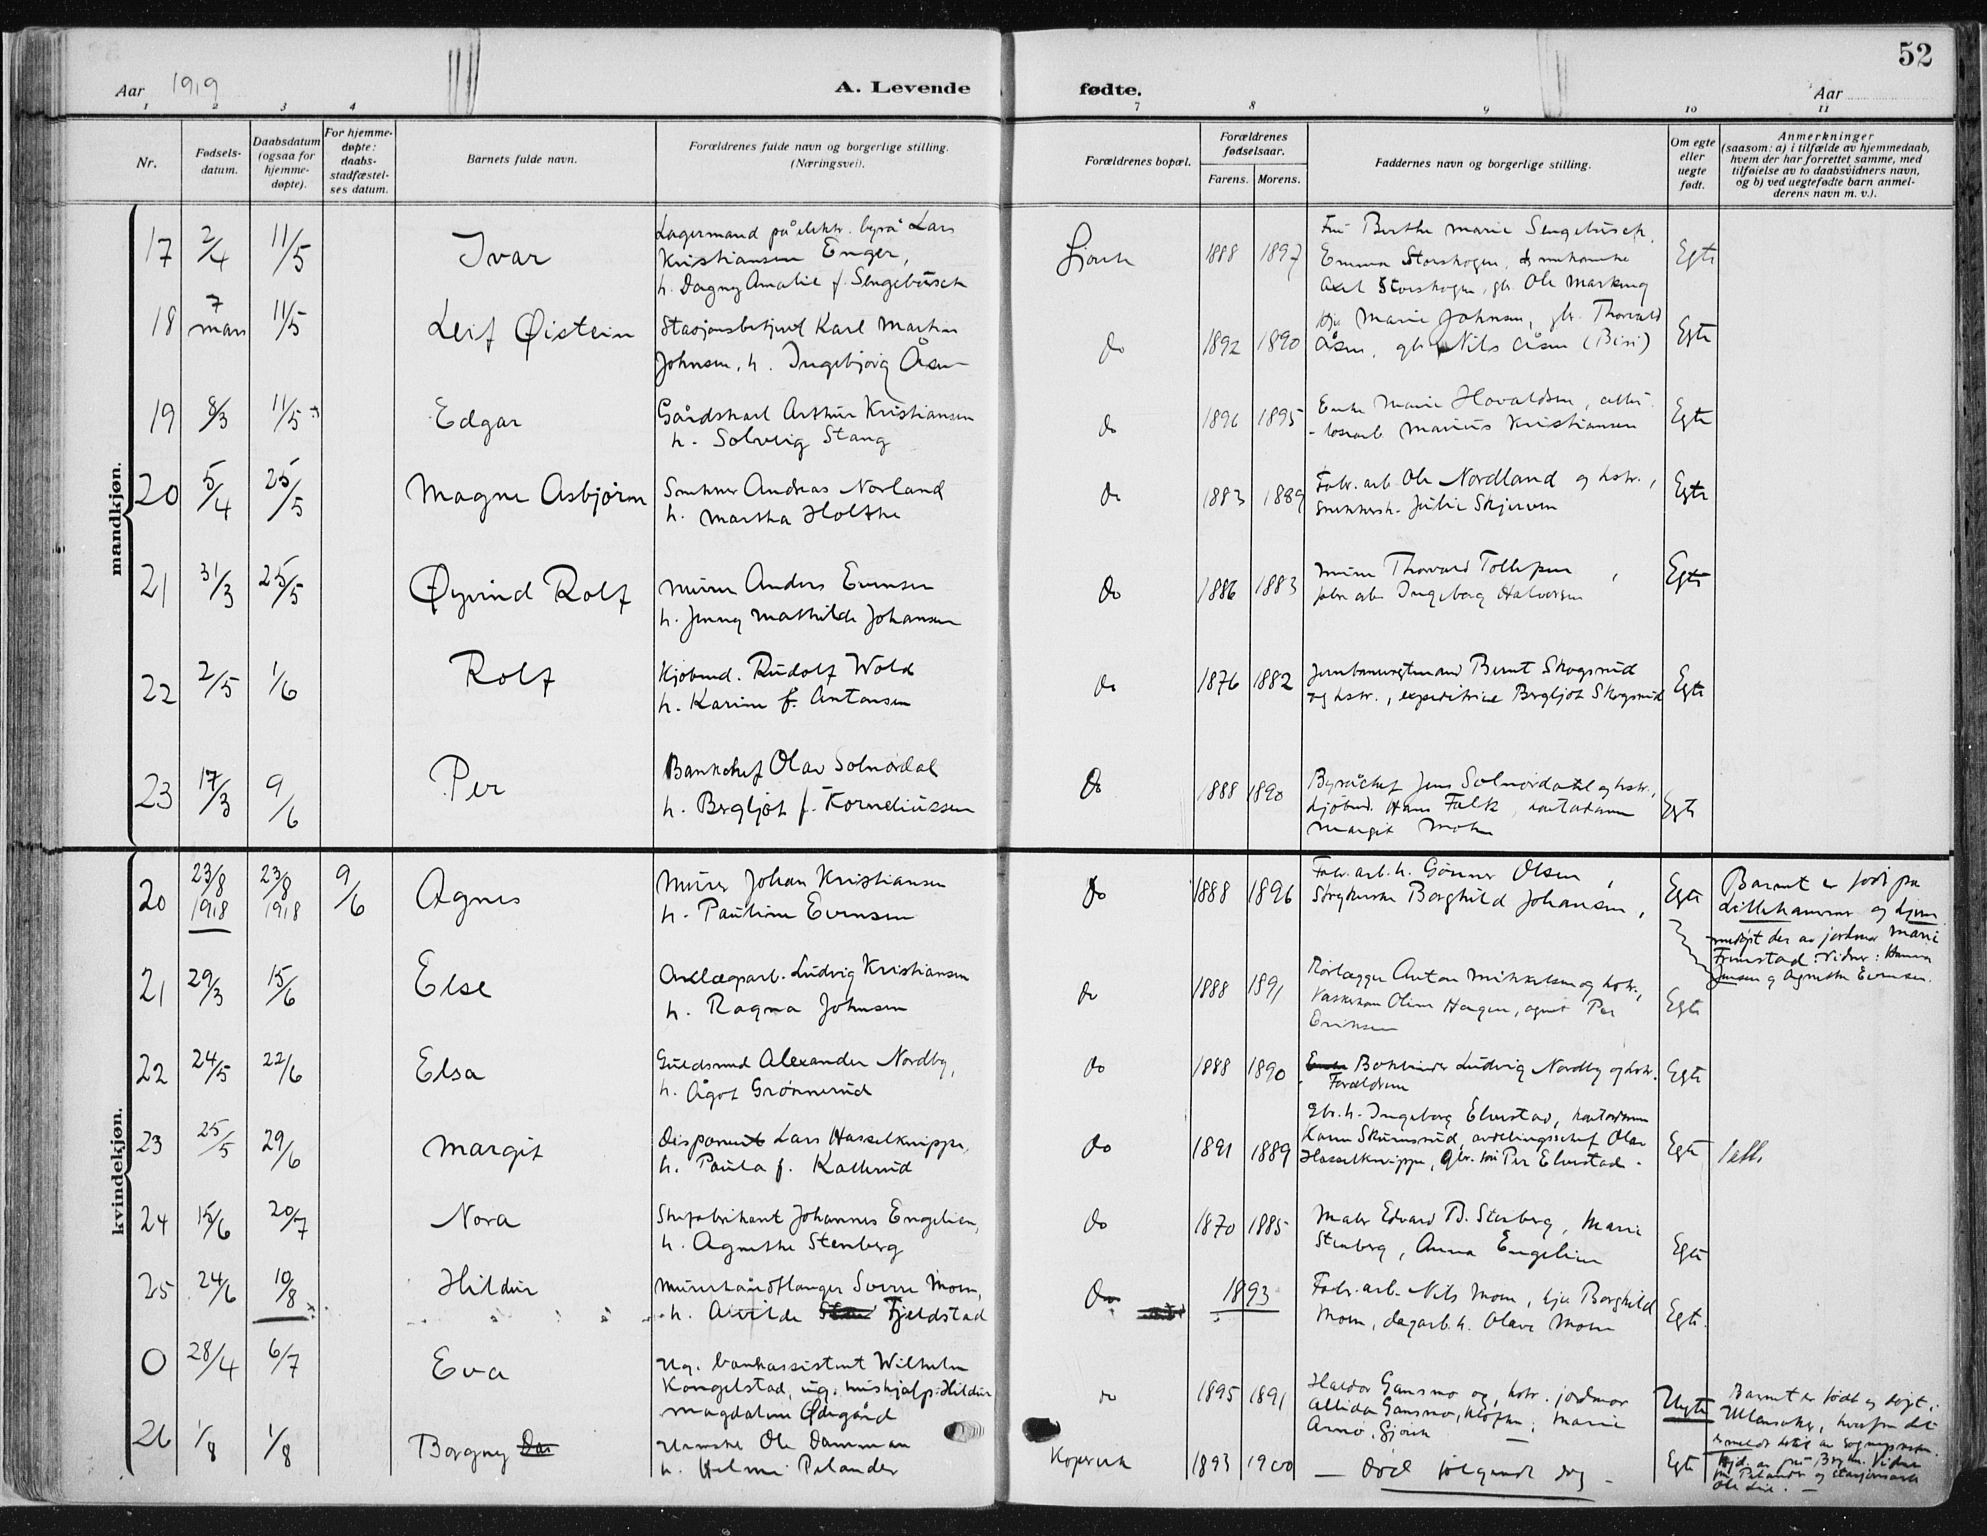 52
Aar 1919
A. Levende fødte.
Aar
1 2 3 4 7 8 9 10 11
Nr.
Fødsels-
datum.
Daabsdatum
(ogsaa for
hjemme-
døpte).
For hjemme-
døpte:
daabs-
stadfæstel-
ses datum.
Barnets fulde navn.
Forældrenes fulde navn og borgerlige stilling.
(Næringsvei).
Forældrenes bopæl.
Forældrenes
fødselsaar.
Farens. Morens.
Faddernes navn og borgerlige stilling.
Om egte
eller
uegte
født.
Anmerkninger
(saasom: a) i tilfælde av hjemmedaab,
hvem der har forrettet samme, med
tilføielse av to daabsvidners navn,
og b) ved uegtefødte barn anmel-
derens navn m. v.).
mandkjøn.
17 2/4 11/5 Ivar
Lagermand på elektr. byrå Lars
Kristiansen Enger,
h. Dagny Amalie f. Sengebusch
Gjøvik 1888 1897
Fru Berthe Marie Sengebusch,
Emma Storskogen,
Axel Storskogen, gbr. Ole
Egte
18 7 mars 11/5 Leif Øistein
Stasjonsbetjent Karl Martin
Johnsen, h. Ingebjørg Åsen
do 1892 1890
Marie Johnsen, gbr. Thorvald
Åsen, gbr Nils Åsen (Biri)
Egte
19 8/3 11/5 Edgar
Gårdskarl Arthur Kristiansen
h. Solveig Stang
do 1896 1895
Enke Marie Havaldsen,
Marius Kristiansen
Egte
20 5/4 25/5 Magne Asbjørn
Snekker Andreas Norland
h. Martha Holthe
do 1883 1889
Fabr. arb. Ole Nordland og hstr.,
Julie Skjerven
Egte
21 31/3 25/5 Øyvind Rolf
Murer Anders Evensen
h. Jenny Mathilde Johansen
do 1886 1883
Murer Thorvard Tollefsen,
fabr arb Ingeborg Halvorsen
Egte
22 2/5 1/6 Rolf
Kjøbmd. Rudolf Wold
h. Karine f. Antonsen
do 1876 1882
Bernt Skogsrud
og hstr., expeditrice Bergljot Skogsrud
Egte
23 17/3 9/6 Per
Bankchef Olav Solnørdal
h. Bergljot f. Korneliussen
do 1888 1890
Byråchef Jens Solnørdal og hstr.,
kjøbmd. Hans Falk, kontordame
Margit Mohn
Egte
kvindekjøn.
20 23/8 1918 23/8 1918 9/6 Agnes
Murer Johan Kristiansen
h. Pauline Evensen
do 1888 1896
Fabr. arb. h. Gunner Olsen,
Strykerske Borghild Johansen,
Egte
Barnet er født på
Lillehammer og hjem-
medøpt der av jordmor Marie
Frenstad. Vidner: Hanna
Jensen og Agnethe Evensen.
21 29/3 15/6 Else
Anlægsarb. Ludvig Kristiansen
h. Ragna Johnsen
do 1888 1891
Rørlægger Anton Mikkelsen og hstr.,
Oline Haugen, agent Per
Eriksen
Egte
22 24/5 22/6 Elsa
Guldsmed Alexander Nordby,
h. Ågot Grønnerud
do 1888 1890
Bokbinder Ludvig Nordby og hstr.
Forældrene
Egte
23 25/5 29/6 Margit
Disponent Lars Hasselknippe,
h. Paula f. Kallerud
do 1891 1889
Gbr. h. Ingeborg Elvestad, kontordame
Karen Skumsrud, avdelingschef Olav
Hasselknippe, gbr. søn Per Elvestad.
Egte
1 att.
24 15/6 20/7 Nora
Skofabrikant Johannes Engelien,
h. Agnethe Stenberg
do 1870 1885
Maler Edvard B. Stenberg, Marie
Stenberg, Anna Engelien
Egte
25 24/6 10/8 Hildur
Murerhåndtlanger Sverre Moen,
h. Alvilde Fjeldstad
do 1893
Fabr. arb. Nils Moen, pike Borghild
Moen, dagarb. h. Olava Moen
Egte.
0 28/4 6/7 Eva
Ug. bankassistent Wilhelm
Kongelstad, ug. hushjælp Hildur
Magdalene Ødegård
do 1895 1891
Haldor Gansmo og hstr. jordmor
Allida Gansmo, Marie
Arno, Gjøvik
Uegte
Barnet er født og døpt i
Ullensaker, hvorfra det
er meldt hertil av sognepresten.
26 1/8 1/8 Borgny
Ole Damman
h. Helmi Pelander
Kopervik 1893 1900
— død følgende dag —
Egte
Ole Lie. —